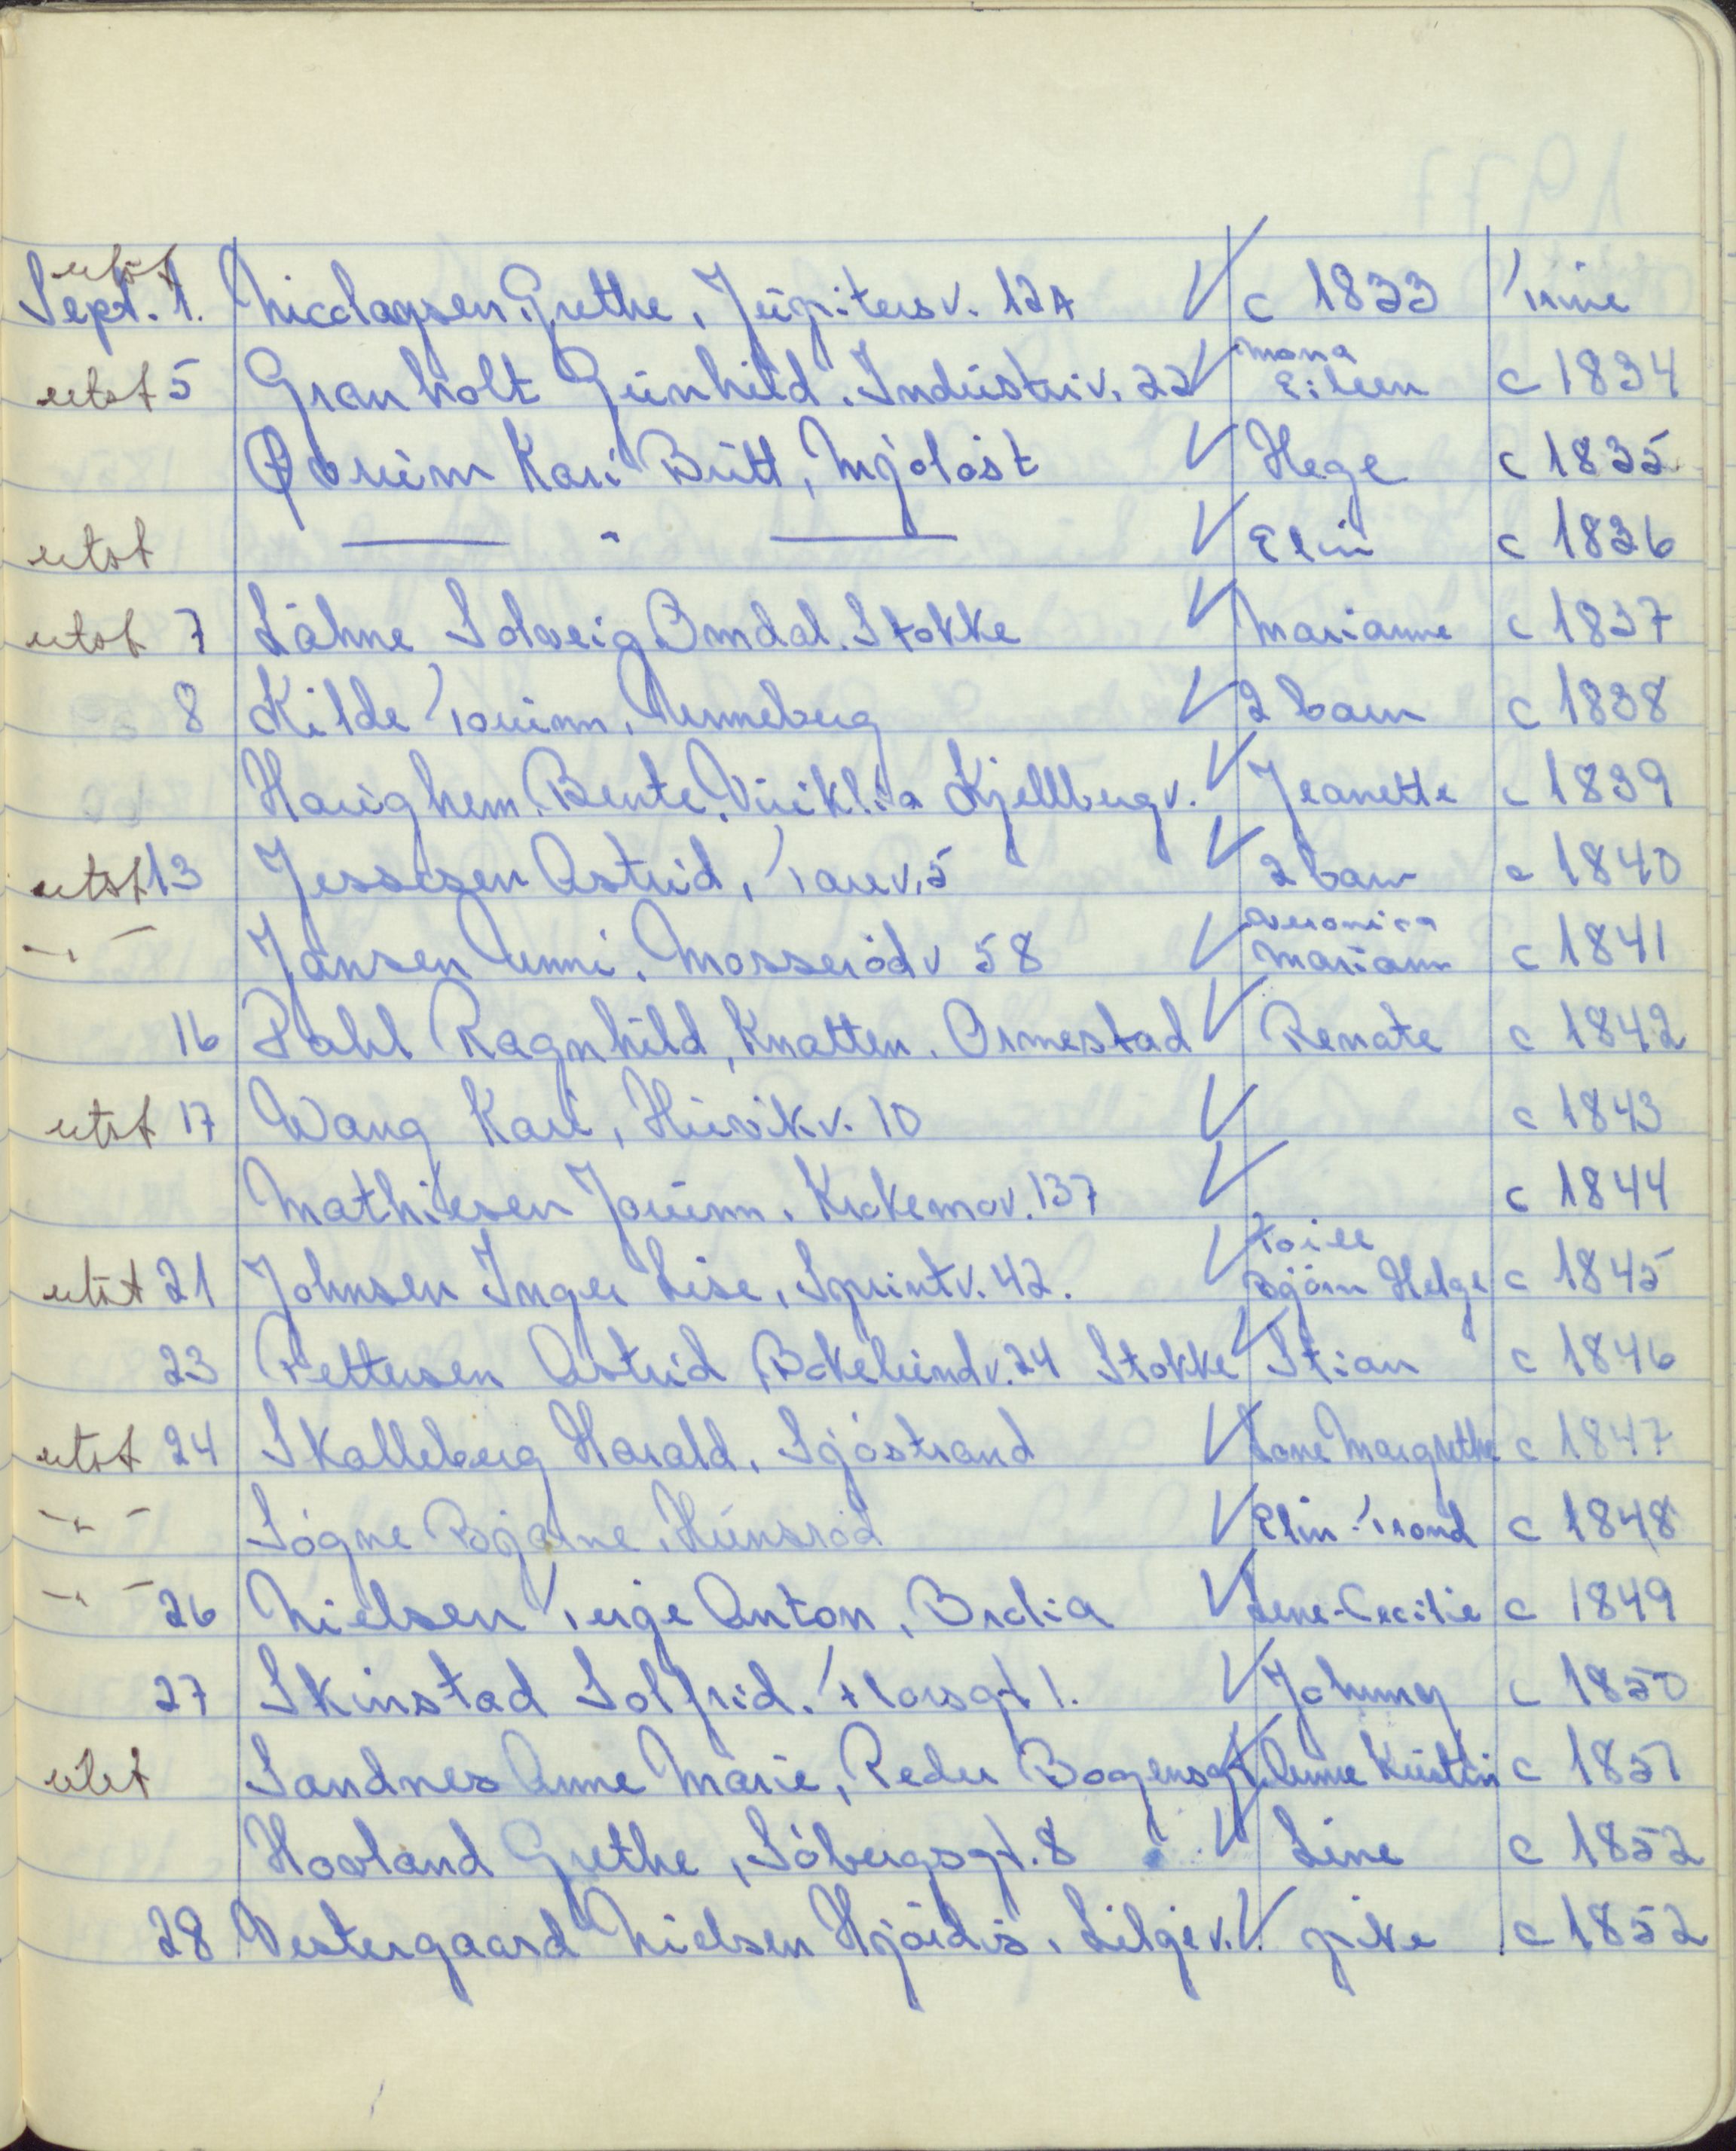 utst
Sept. 1. Nicolaysen, Grethe, Jupitersv. 12A c 1833 Trine
utst 5 Granholt Gunhild. Industriv. 22 Mona Eileen c 1834
Øvrum Kari Britt, Mjøløst Hege c 1835
utst — " — Elin c 1836
utst 7 Løhne Solveig Omdal. Stokke Marianne c 1837
8 Kilde Torunn, Unneberg 2 barn c 1838
Bente, Virik Kjellbergv. Jeanette c 1839
utst 13 Jessesen Astrid, Tarev. 5 2 barn c 1840
— " — Jansen Unni, Mosserødv 58 Veronica Mariann c 1841
16 Dahl Ragnhild, Knatten. Ormestad Renate c 1842
utst 17 Wang Kari, Huvikv. 10 c 1843
Mathiesen Jorunn. Krokemov. 137 c 1844
utst 21 Johnsen Inger Lise, Sprintv. 42. Bjørn Helge c 1845
23 Pettersen Astrid, Bøkelundv. 24 Stokke Stian c 1846
utst 24 Skalleberg Harald, Sjøstrand Lone Margrethe c 1847
— " — Søgne Bjarne, Hunsrød Elin-Trond c 1848
— " — 26 Nielsen Terje Anton, Brolia Lene-Cecilie c 1849
27 Skinstad Solfrid. Thorsgt 1. Johnny c 1850
utst Sandnes Anne Marie, Peder Bogensgt. Anne Kirstin c 1851
Hovland Grethe, Søbergsgt. 8 Line c 1852
28 Vestergaard Nielsen Hjørdis, Liljev. pike c 1852